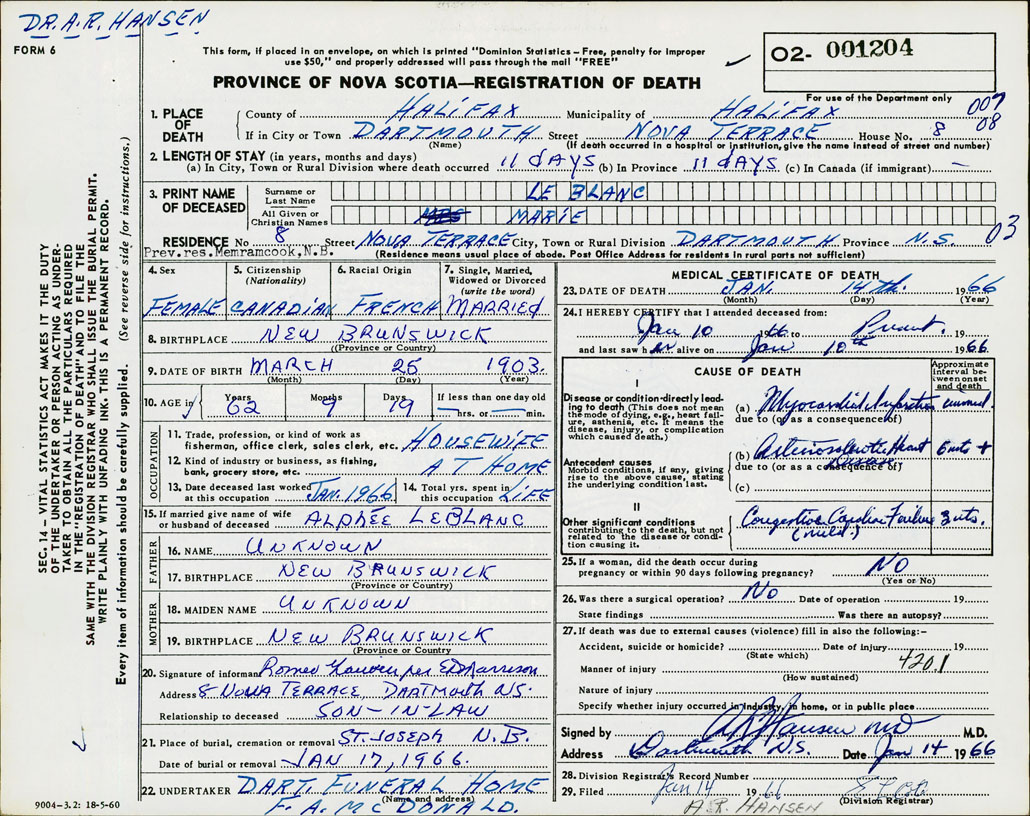 DR. A.R. HANSEN
FORM 6
This form, if placed in an envelope, on which is printed "Dominion Statistics – Free, penalty for improper
use $50," and properly addressed will pass through the mail "FREE"
02- 001204
PROVINCE OF NOVA SCOTIA—REGISTRATION OF DEATH
For use of the Department only
007
08
1. PLACE OF DEATH
County of HALIFAX Municipality of HALIFAX
If in City or Town DARTMOUTH Street NOVA TERRACE House No. 8
(Name) (If death occurred in a hospital or institution, give the name instead of street and number)
2. LENGTH OF STAY (in years, months and days)
(a) In City, Town or Rural Division where death occurred 11 DAYS (b) In Province 11 DAYS (c) In Canada (if immigrant) —
3. PRINT NAME OF DECEASED
Surname or Last Name LE BLANC
All Given or Christian Names MRS MARIE
03
RESIDENCE No 8 Street NOVA TERRACE City, Town or Rural Division DARTMOUTH Province N.S.
Prev.res.Memramcook,N.B. (Residence means usual place of abode. Post Office Address for residents in rural parts not sufficient)
4. Sex FEMALE
5. Citizenship (Nationality) CANADIAN
6. Racial Origin FRENCH
7. Single, Married, Widowed or Divorced (write the word) MARRIED
8. BIRTHPLACE NEW BRUNSWICK
(Province or Country)
9. DATE OF BIRTH MARCH 25 1903.
(Month) (Day) (Year)
10. AGE in Years 62 Months 9 Days 19 If less than one day old — hrs. or — min.
OCCUPATION
11. Trade, profession, or kind of work as
fisherman, office clerk, sales clerk, etc. HOUSEWIFE
12. Kind of industry or business, as fishing,
bank, grocery store, etc. AT HOME
13. Date deceased last worked at this occupation JAN. 1966
14. Total yrs. spent in this occupation LIFE
15. If married give name of wife
or husband of deceased ALPHÉE LEBLANC
FATHER
16. NAME UNKNOWN
17. BIRTHPLACE NEW BRUNSWICK
(Province or Country)
MOTHER
18. MAIDEN NAME UNKNOWN
19. BIRTHPLACE NEW BRUNSWICK
(Province or Country)
20. Signature of informant Romeo per
Address 8 NOVA TERRACE, DARTMOUTH N.S.
Relationship to deceased SON-IN-LAW
21. Place of burial, cremation or removal ST. JOSEPH N.B.
Date of burial or removal JAN 17, 1966.
22. UNDERTAKER DART. FUNERAL HOME
(Name and address)
F. A. MCDONALD.
MEDICAL CERTIFICATE OF DEATH
23. DATE OF DEATH JAN. 14TH. 1966
(Month) (Day) (Year)
24. I HEREBY CERTIFY that I attended deceased from:
Jan 10 1966 to Present. 19
and last saw her alive on Jan 10th 1966
CAUSE OF DEATH
Approximate interval between onset and death
I
Disease or condition directly leading to death (This does not mean the mode of dying, e.g., heart failure, asthenia, etc. It means the disease, injury, or complication which caused death.)
(a) Myocardial Infarction
due to (or as a consequence of)
Antecedent causes
Morbid conditions, if any, giving rise to the above cause, stating the underlying condition last.
(b) Arteriosclerotic Heart
due to (or as a consequence of)
(c)
II
Other significant conditions contributing to the death, but not related to the disease or condition causing it.
Congestive Cardiac Failure
(mild.)
25. If a woman, did the death occur during
pregnancy or within 90 days following pregnancy? NO
(Yes or No)
26. Was there a surgical operation? NO Date of operation 19
State findings Was there an autopsy?
27. If death was due to external causes (violence) fill in also the following:-
Accident, suicide or homicide? Date of injury 19
(State which)
4201
Manner of injury
(How sustained)
Nature of injury
Specify whether injury occurred in industry, in home, or in public place
Signed by AR Hansen MD M.D.
Address Dartmouth N.S. Date Jan 14 1966
28. Division Registrar's Record Number
29. Filed Jan 14 1966
(Division Registrar)
A R. HANSEN
SEC. 14 – VITAL STATISTICS ACT MAKES IT THE DUTY
OF THE UNDERTAKER OR PERSON ACTING AS UNDER-
TAKER TO OBTAIN ALL THE PARTICULARS REQUIRED
IN THE "REGISTRATION OF DEATH" AND TO FILE THE
SAME WITH THE DIVISION REGISTRAR WHO SHALL ISSUE THE BURIAL PERMIT.
WRITE PLAINLY WITH UNFADING INK. THIS IS A PERMANENT RECORD.
Every item of information should be carefully supplied. (See reverse side for instructions.)
9004-3.2: 18-5-60